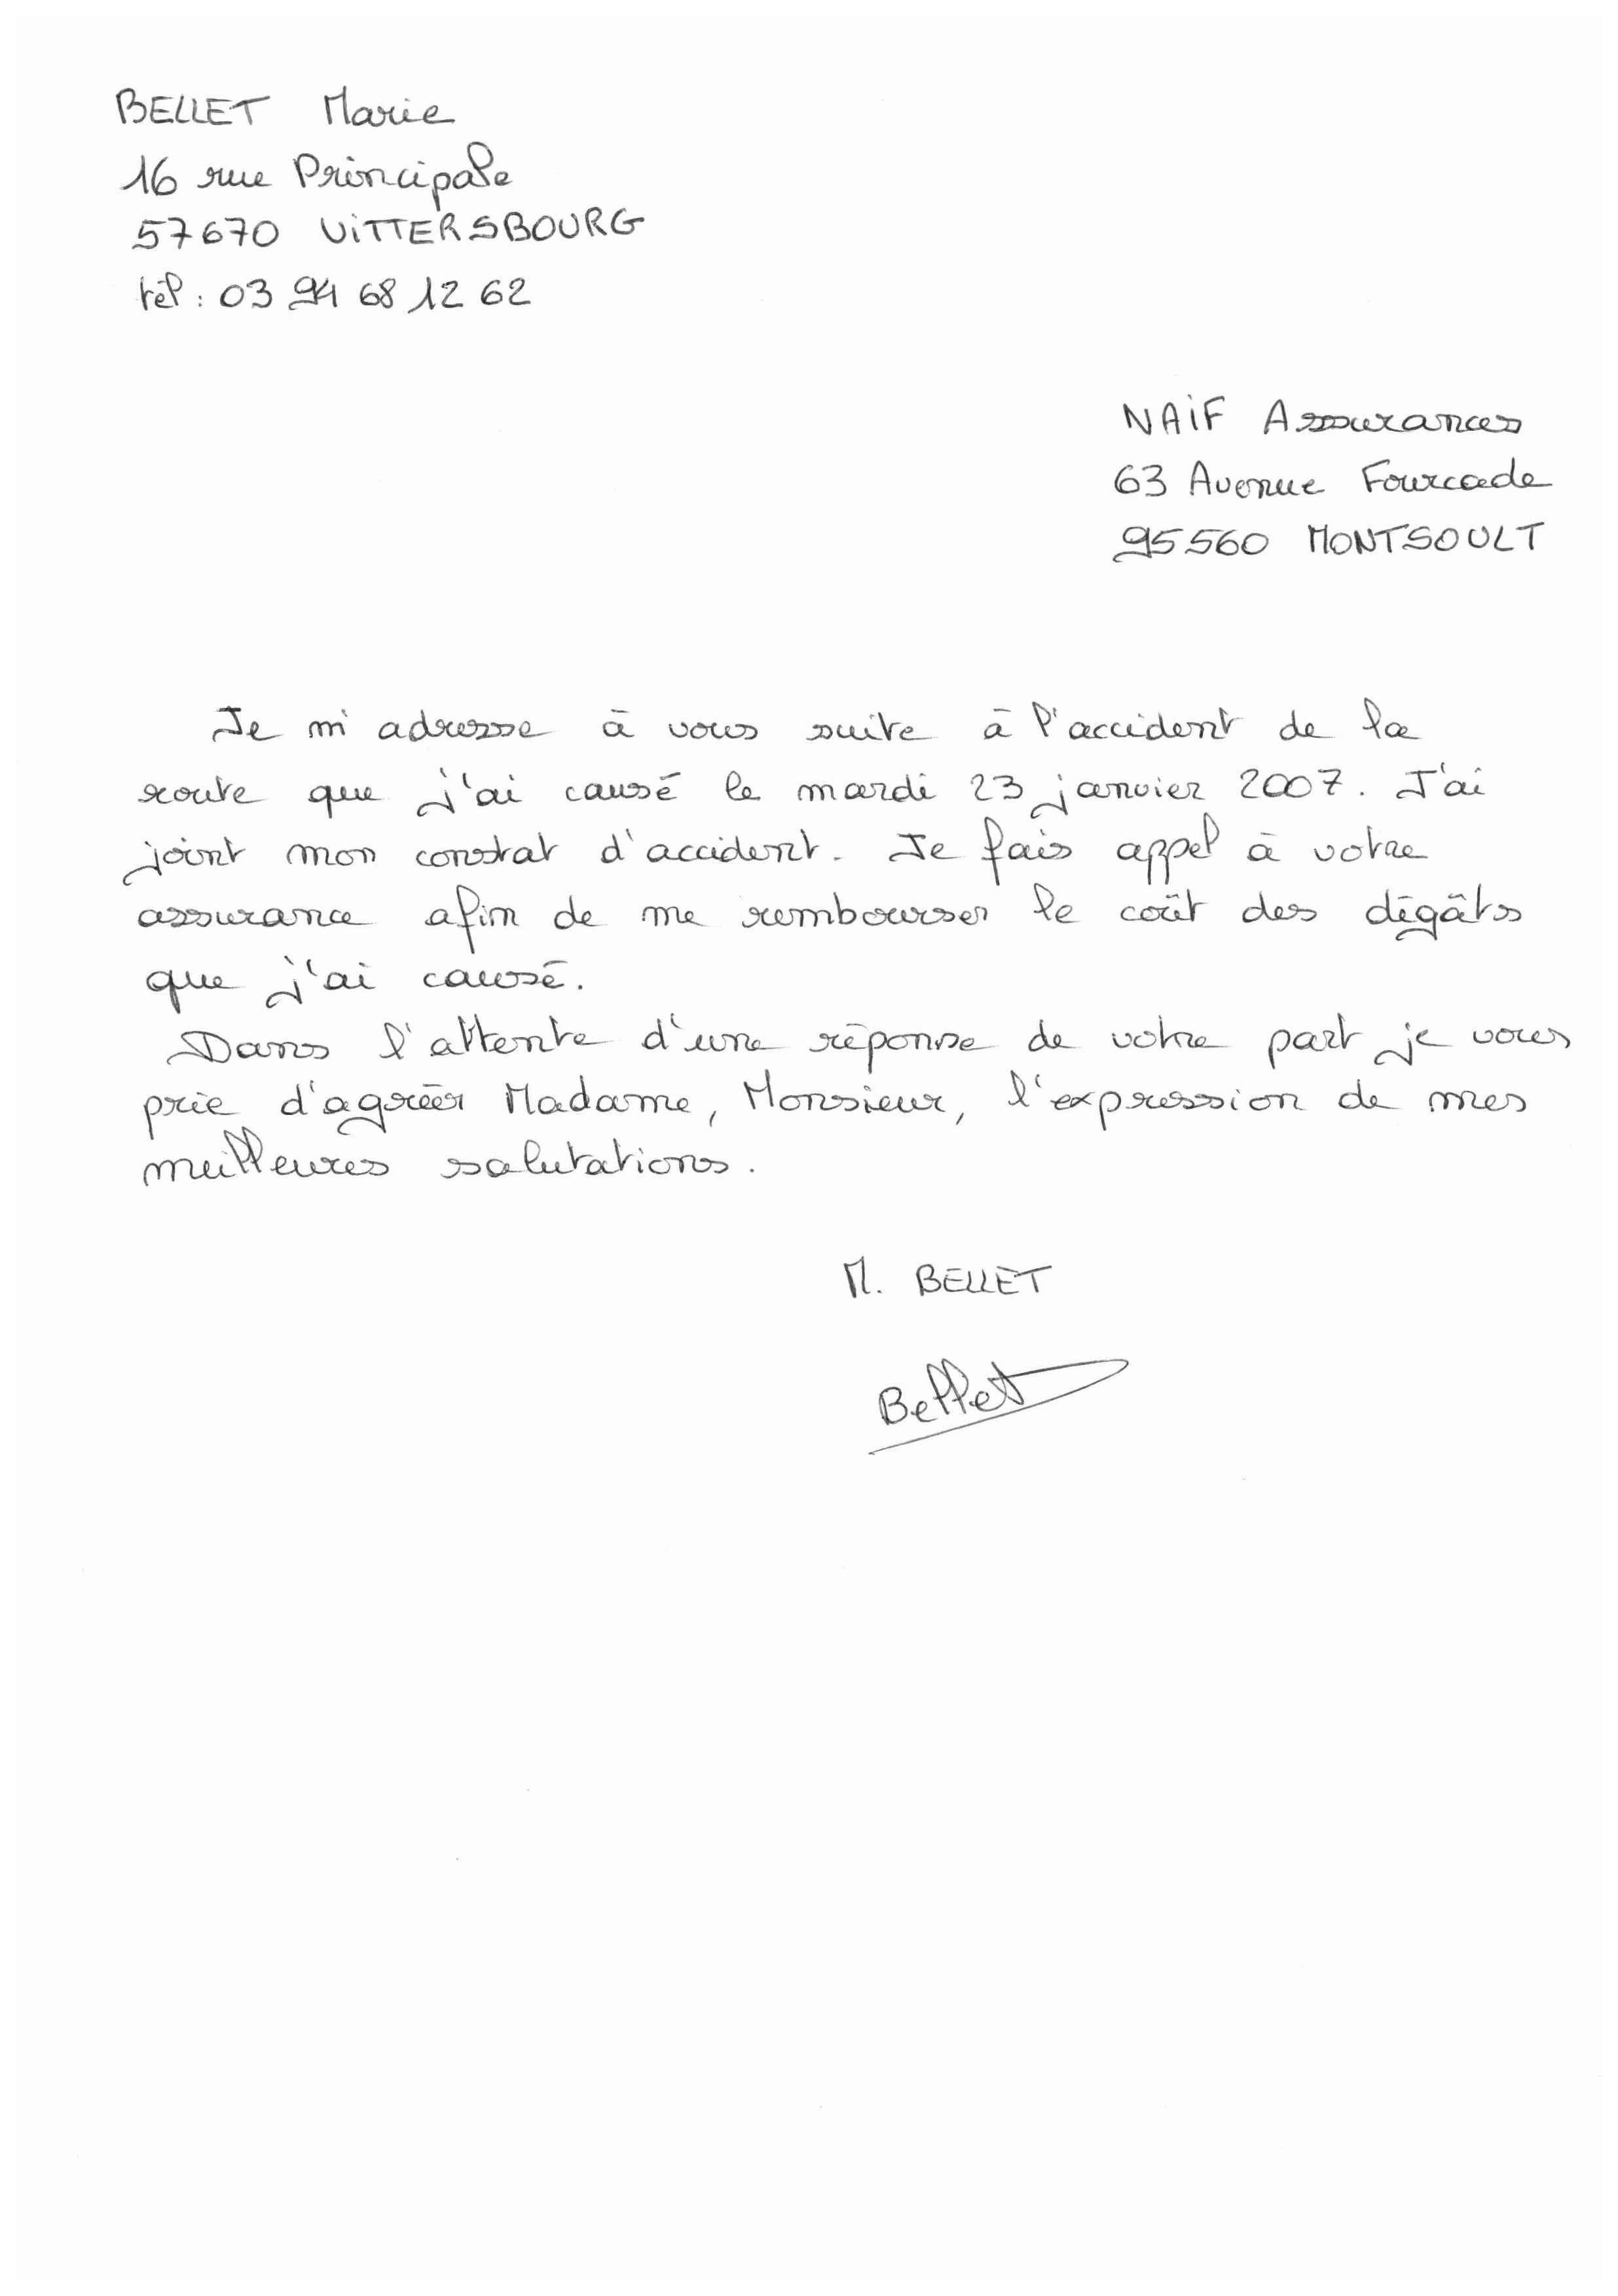 BELLET Marie
16 rue Principale
57670 ViTTERSBOURG
tél : 03 94 68 12 62
NAiF Assurances
63 Avenue Fourcade
95560 MONTSOULT
Je m'adresse à vous suite à l'accident de la
route que j'ai causé le mardi 23 janvier 2007. J'ai
joint mon constat d'accident. Je fais appel à votre
assurance afin de me rembourser le coût des dégâts
que j'ai causé.
Dans l'attente d'une réponse de votre part je vous
prie d'agréer Madame, Monsieur, l'expression de mes
meilleures salutations.
M. BELLET
Bellet